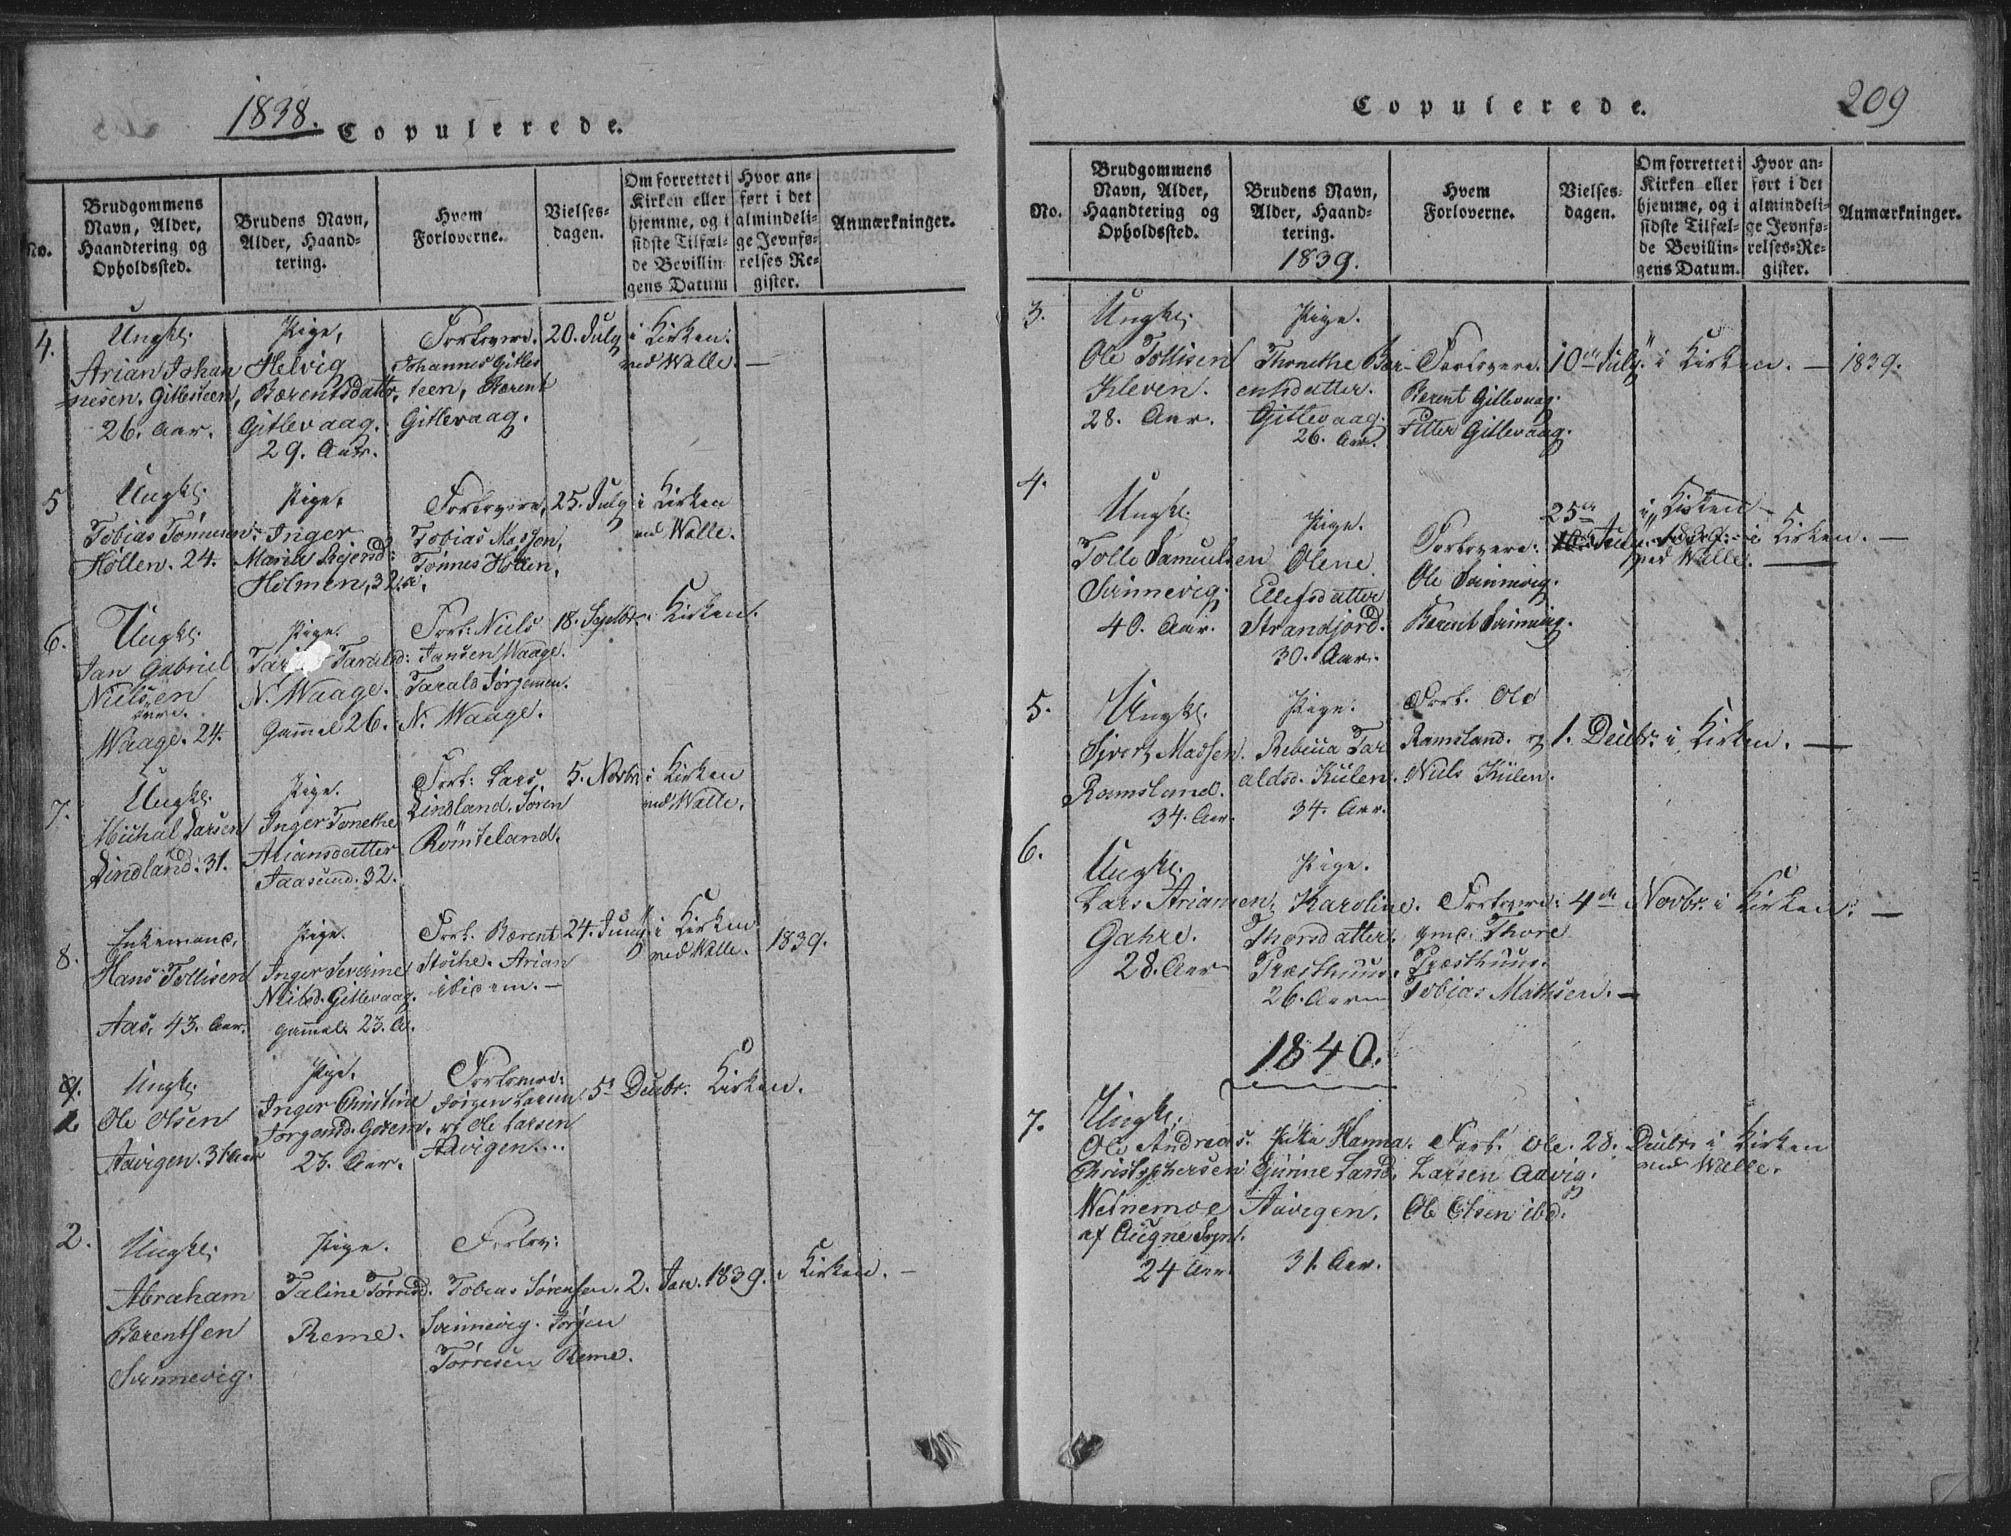 1838. Copulerede.
No.
Brudgommens Navn, Alder, Haandtering og Opholdssted.
Brudens Navn, Alder, Haandtering.
Hvem Forloverne.
Vielsesdagen.
Om forrettet i Kirken eller hjemme, og i sidste Tilfælde Bevillingens Datum
Hvor anført i det almindelige Jevnførelses Register.
Anmærkninger.
4.
Ungkl:
Arian Johan
nesen. Gitlesteen,
26. Aar.
Pige,
Helvig
Bærentsdatter,
Gitlevaag.
29. Aar.
Forlovere.
Johannes Gitles
teen, Bærent
Gitlevaag.
20. July
i Kirken.
ved Walle. —
5
Ungkl.
Tobias Tønnesen:
Höllen. 24.
Pige,
Inger
Maria
Holmen, 32.
Forlovere,
Tobias
Tønnes Höllen,
25. July
i Kirken
ved Walle.
6.
Ungkl:
Jan Gabriel
Nielsen
Waage. 24.
Pige.
Taraldsd:
N. Waage.
Gammel 26.
Forl: Niels
Jansen Waage.
Tarald Jørgensen.
N. Waage.
18. Septbr.
Kirken.
7.
Ungkl.
Michal Larsen
Lindland. 31.
Pige.
Inger Tonethe
Ariansdatter
Faasund. 32.
Forl: Lars
Lindland. Sören
Römteland.
5. Novbr
i Kirken
ved Walle.
8.
Enkemand,
Hans Tollisen
Aas. 43. Aar.
Pige.
Inger Severine
Nielsd. Gitlevaag.
gammel. 23. A.
Forl. Bærent
Arian
ibidem. —
24. Juny
i Kirken
ved Walle.
1839.
1
Ungkl;
Ole Olsen
Aavigen. 31 Aar
Pige.
Inger Christine
23. Aar.
Forlovere:
Jörgen Larsen
og Ole Larsen
Aavigen....
5 Decbr.
Kirken.
2.
Ungkl;
Abraham
Bærentsen
Svinnevig.
Pige.
Taline Tørresd.
Reme.
Forlov:
Tobias Sørensen.
Svinnevig. Jörgen
Törresen Reme.
2. Jan. 1839.
i Kirken. —
Copulerede.
209
No.
Brudgommens Navn, Alder, Haandtering og Opholdssted.
Brudens Navn, Alder, Haandtering.
1839.
Hvem Forloverne.
Vielsesdagen.
Om forrettet i Kirken eller hjemme, og i sidste Tilfælde Bevillingens Datum.
Hvor anført i det almindelige Jevnførelses-Register.
Anmærkninger.
3.
Ungkl;
Ole Tollisen
Kleven.
28. Aar.
Pige.
Thonethe Bær-
entsdatter.
Gitlevaag.
26. Aar.
Forlovere.
Bærent Gitlevaag.
Pitter Gitlevaag.
10de July.
i Kirken. —
1839.
4.
Ungkl.
Tolle Samuelsen
Svinnevig.
40. Aar.
Pige.
Olene
Ellefsdatter
Strandjord.
30. Aar.
Forlovere:
Ole Svinnevig.
Bærent Svinnevig.
25de
i Kirken —
ved Walle.
i Kirken. —
5.
Ungkl.
Sivert Madsen.
Ramsland.
34. Aar.
Pige.
Rebecca Tar
aldsd. Kiilen.
34. Aar.
Forl. Ole
Ramsland. og
Niels Kiilen.
1. Decbr.
i Kirken. —
6.
Ungkl.
Lars Ariansen.
Gahre.
28. Aar
Pige.
Karoline.
Thorsdatter.
Præsthuus.
26. Aar
Forlovere:
Thore
Præsthuus.
Tobias Mathsen. —
4de Novbr.
i Kirken. —
1840.
7.
Ungkl.
Ole Andreas.
Christophersen
Weinemoe
af
24 Aar.
Hanna.
Gurine Land.
Aavigen.
31. Aar.
Forl. Ole.
Larsen Aavig.
Ole Olsen ibd:
28. Decbr.
i Kirken
ved Walle.